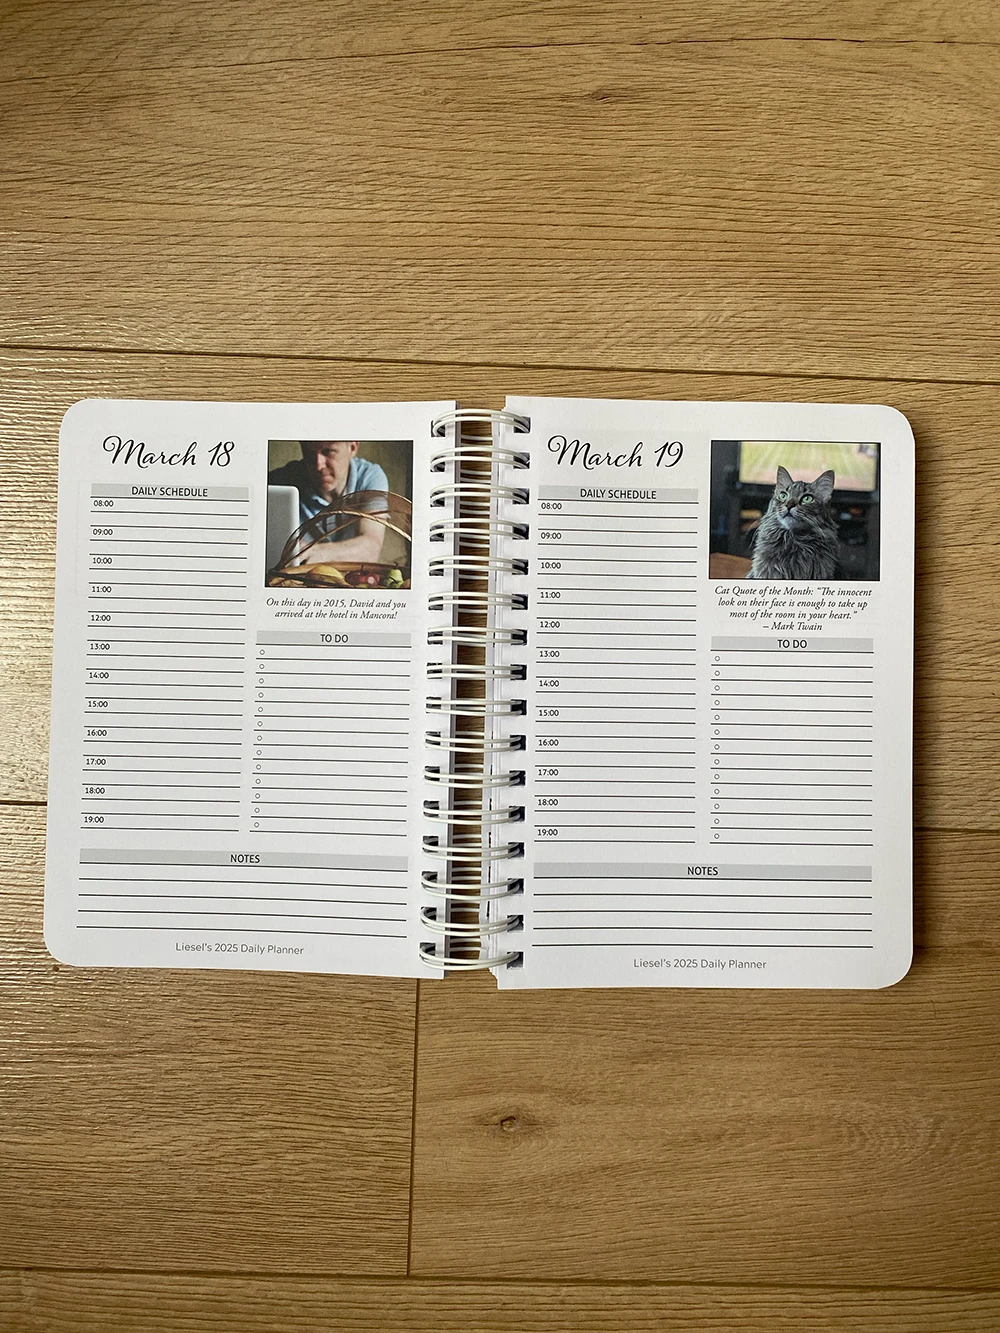 March 18
DAILY SCHEDULE
08:00
09:00
10:00
11:00
12:00
13:00
14:00
15:00
16:00
17:00
18:00
19:00
On this day in 2015, David and you
arrived at the hotel in Mancora!
TO DO
NOTES
Liesel's 2025 Daily Planner
March 19
DAILY SCHEDULE
08:00
09:00
10:00
11:00
12:00
13:00
14:00
15:00
16:00
17:00
18:00
19:00
Cat Quote of the Month: "The innocent
look on their face is enough to take up
most of the room in your heart."
– Mark Twain
TO DO
NOTES
Liesel's 2025 Daily Planner